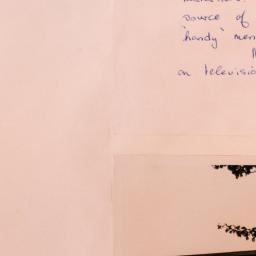 source of
'handy' men
on televisio